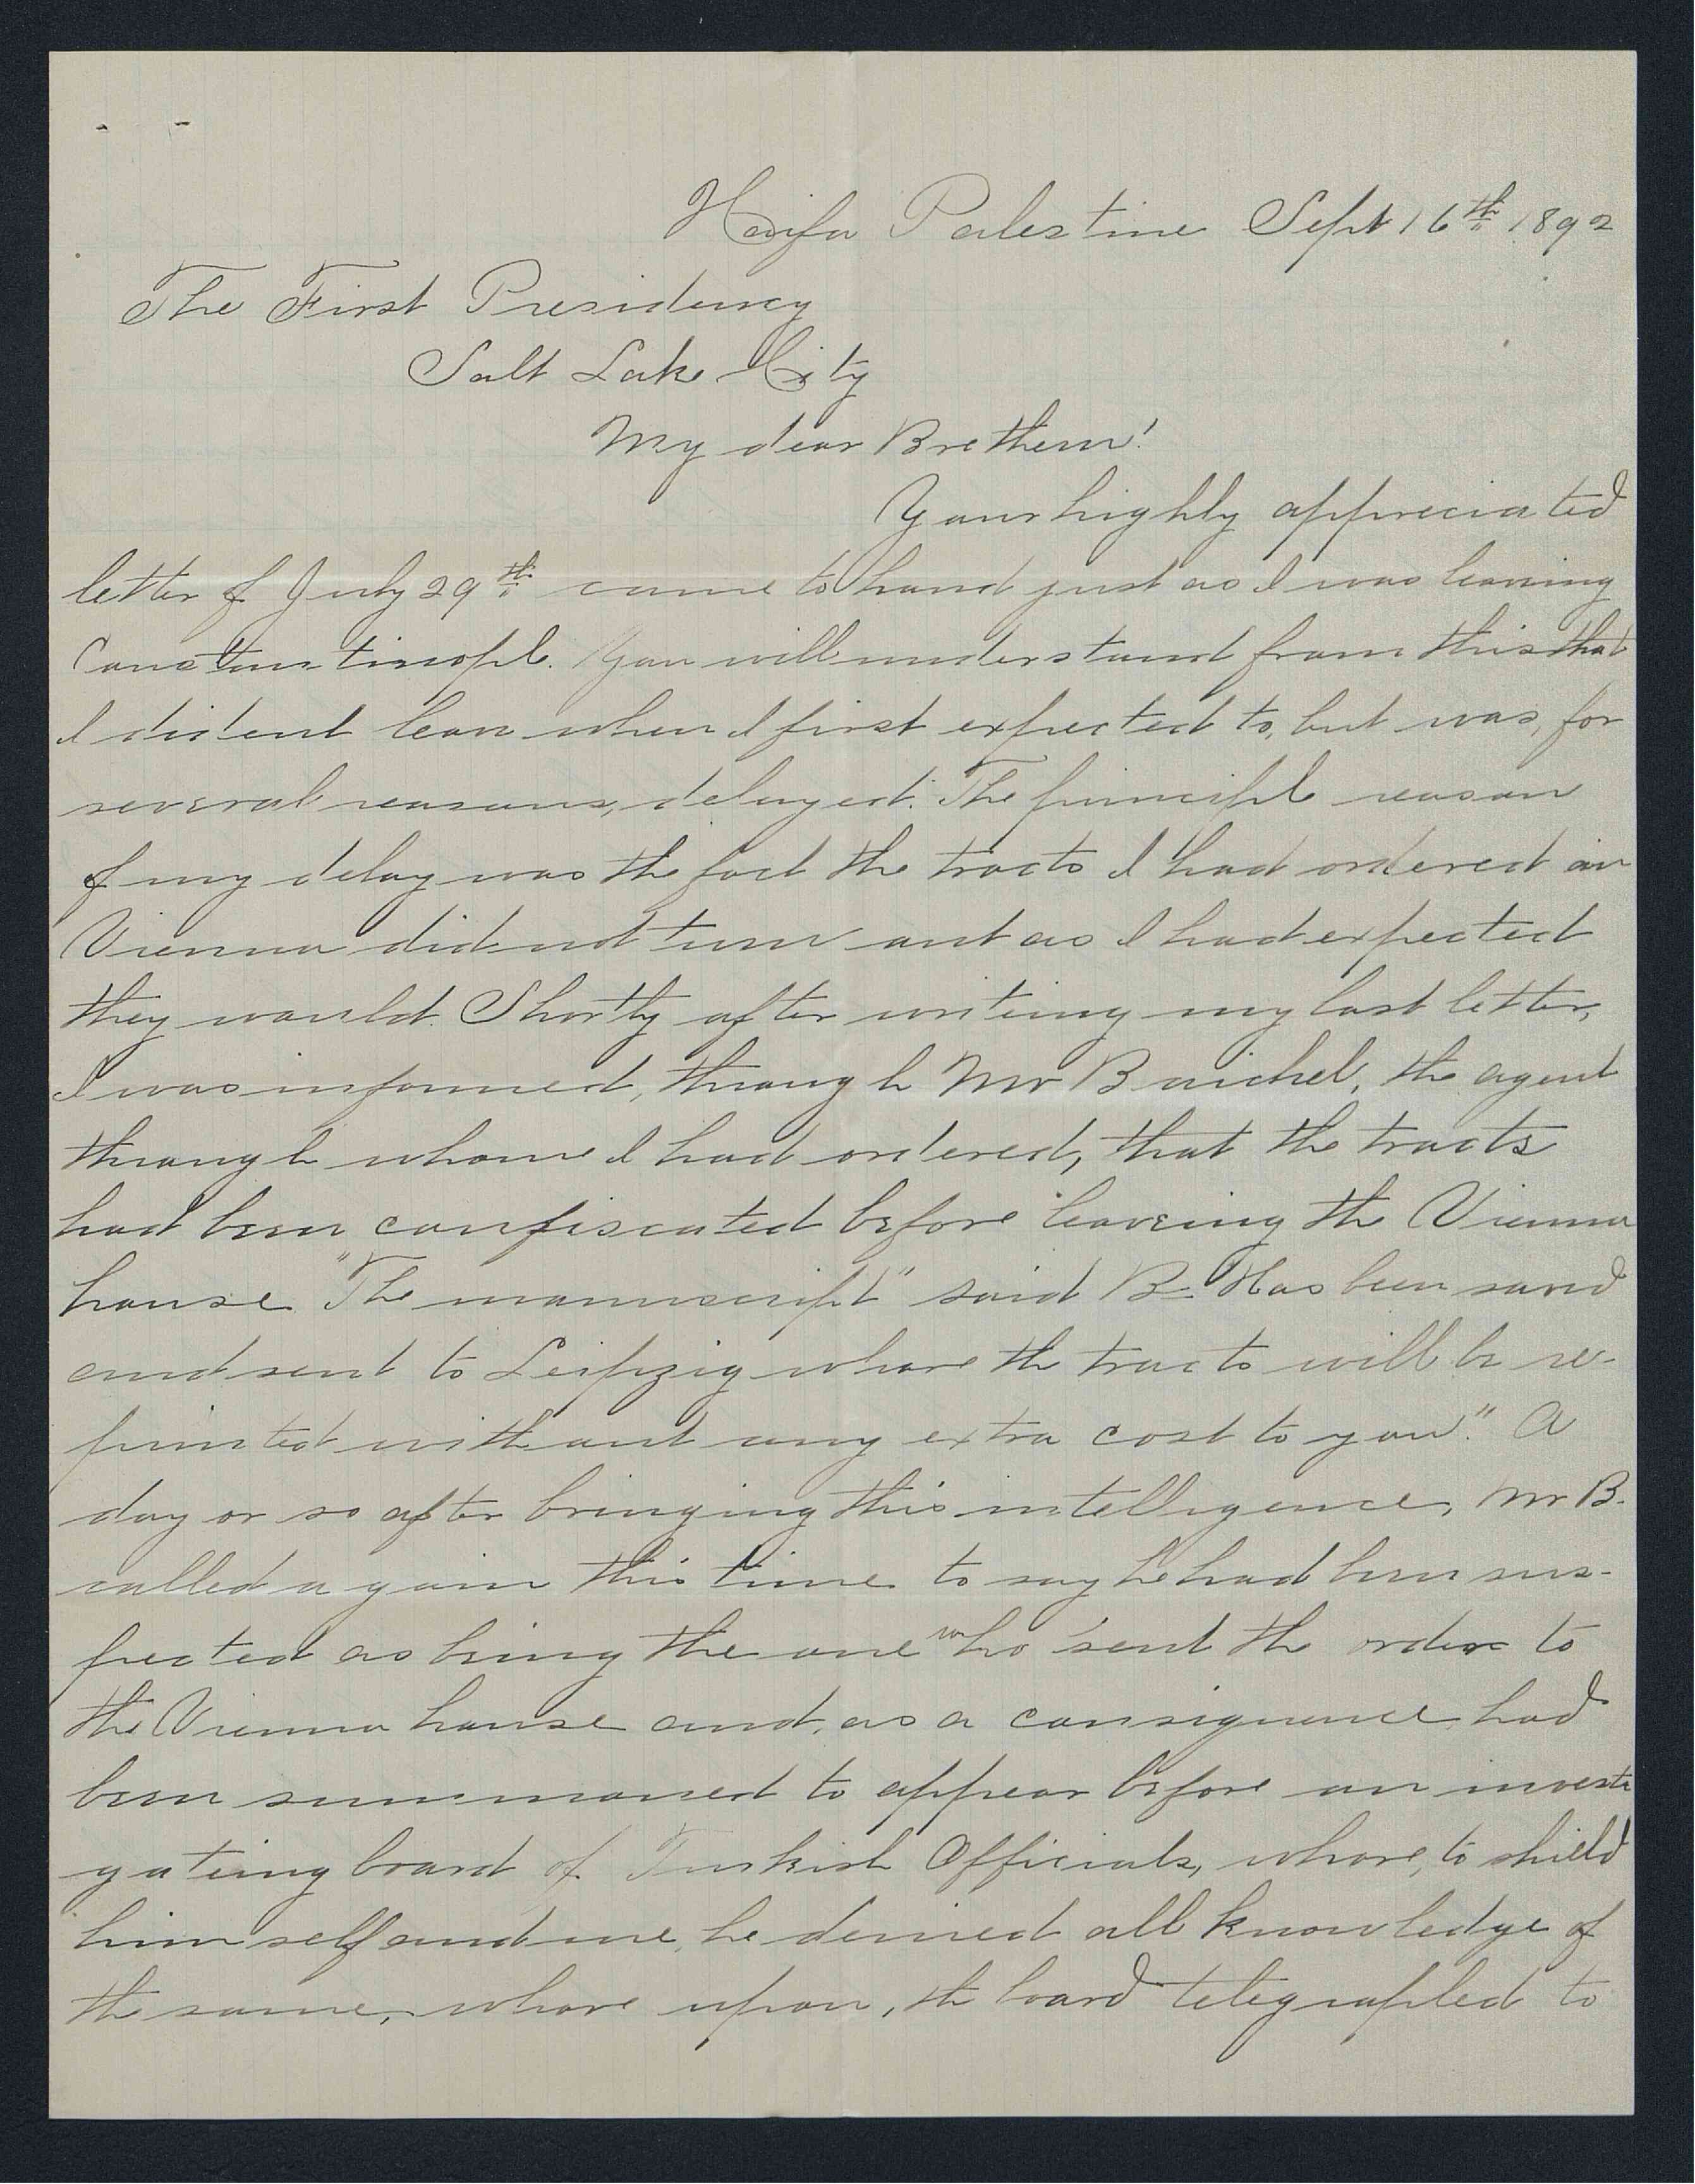 Haifa Palestine Sept 16th 1892
The First Presidency
Salt Lake City
My dear Brethern!
Your highly appreciated
letter of July 29th came to hand just as I was leaving
Constantinopl. You will understand from this that
I dident leav when I first expected to, but was, for
several reasons, delayed. The principle reason
of my delay was the fact the tracts I had ordered in
Vienna did not turn out as I had expected
they would. Shortly after writing my last letter,
I was informed, through Mr B the agent
through whome I had ordered, that the tracts
had been confiscated before leaveing the Vienna
house. "The manuscript" said B. "Has been saved
and sent to Leipzig whare the tracts will be re-
printed without any extra cost to you." A
day or so after bringing this intelligence, Mr B.
called again this time to say he had been sus-
pected as being the one who sent the order to
the Vienna house and, as a consiquence had
been summoned to appear before an investi
gating board of Turkish Officials, whare, to shield
himself and me, he denied all knowledge of
the same, whare upon, the board telegraphed to